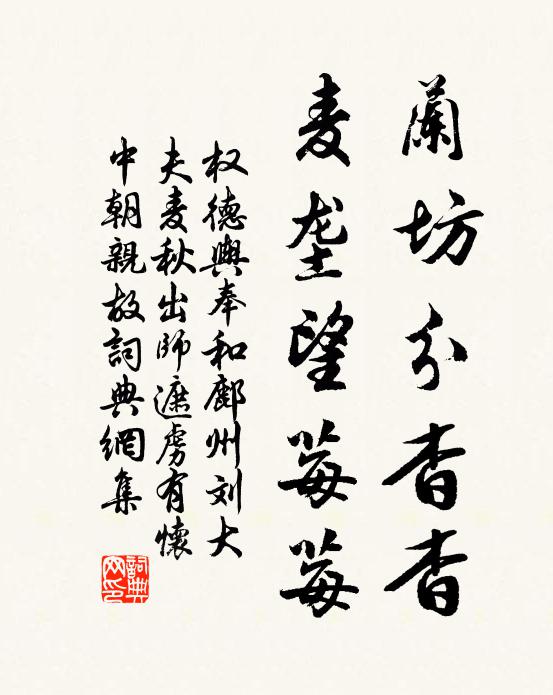 蘭坊分杳杳
麦垄望莓莓
权德輿奉和鄜州刘大
夫麦秋出师遮虏有懷
中朝親故詞典網集
詞典网印